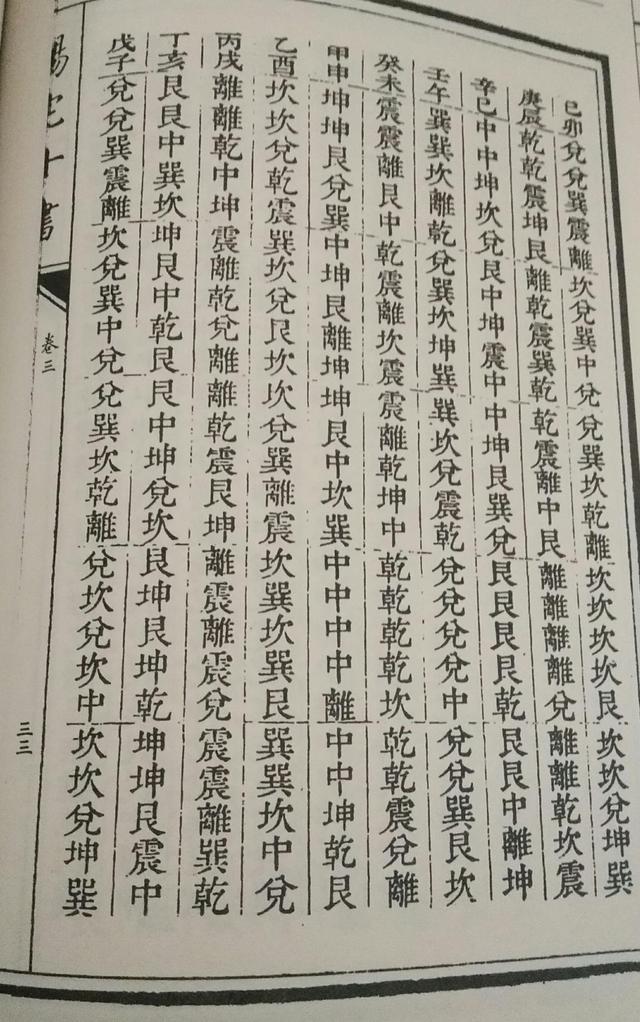 己卯兌兌巽震離坎兌巽中兌兌巽坎乾離坎坎坎坎艮坎坎兌坤巽
庚辰乾乾震坤艮離乾震巽乾乾震離中艮離離離離兌離離乾坎震
辛巳中中坤坎兌艮中坤震中中坤艮巽兌艮艮艮艮乾艮艮中離坤
壬午巽巽坎離乾兌巽坎坤巽巽坎兌震乾兌兌兌兌中兌兌巽艮坎
癸未震震離艮中乾震離坎震震離乾坤中乾乾乾乾坎乾乾震兌離
甲申坤坤艮兌巽中坤艮離坤坤艮中坎巽中中中中離中中坤乾艮
乙酉坎坎兌乾震巽坎兌艮坎坎兌巽離震坎巽坎巽艮巽巽坎中兌
丙戌離離乾中坤震離乾兌離離乾震艮坤離震離震兌震震離巽乾
丁亥艮艮中巽坎坤艮中乾艮艮中坤兌坎艮坤艮坤乾坤坤艮震中
戊子兌兌巽震離坎兌巽中兌兌巽坎乾離兌坎兌坎中坎坎兌坤巽
陽宅十書
卷三
三三